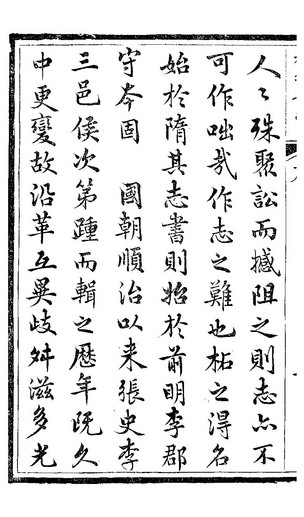 人〻殊聚訟而撼阻之則志亦不
可作咄哉作志之難也柘之得名
始於隋其志書則始於前明李郡
守岑固　國朝順治以来張史李
三邑侯次第踵而輯之歷年既久
中更變故沿革互異歧舛滋多光